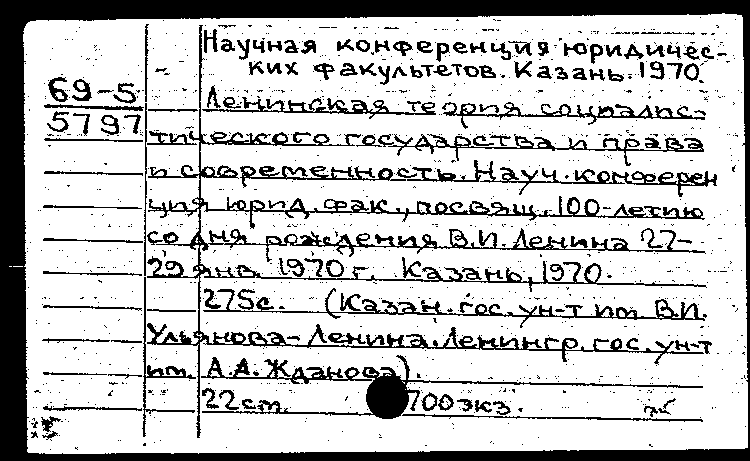 Научная конференция юридичес-
ких факультетов. Казань. 1970.
69-5
5797
Ленинская теория социалис-
тического государства и права
и современность. Науч. конферен
ция юрид. фак., посвящ. 100-летию
со дня рождения В.И. Ленина 27-
29 янв. 1970 г. Казань, 1970.
275с. (Казан. гос. ун-т им. В.И.
Ульянова-Ленина. Ленингр. гос. ун-т
им. А.А. Жданова).
22 cm. 700 экз.